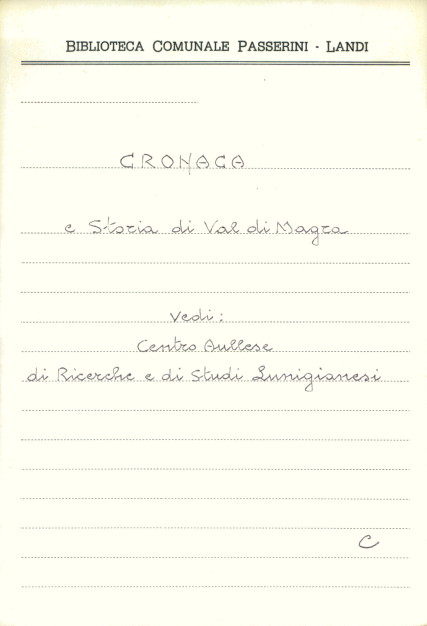 BIBLIOTECA COMUNALE PASSERINI - LANDI
CRONACA
e Storia di Val di Magra
Vedi:
Centro Aullese
di Ricerche e di Studi Lunigianesi
C